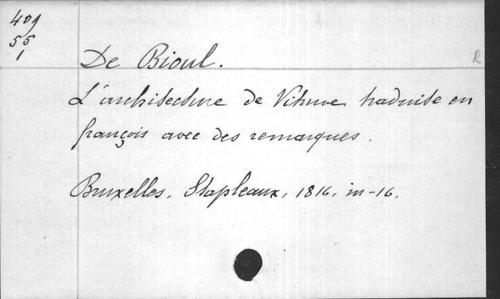 409
55
1
De Bioul.
R
L'architecture de Vitruve traduite en
françois avec des remarques.
Bruxelles, Stapleaux, 1816, in-16.